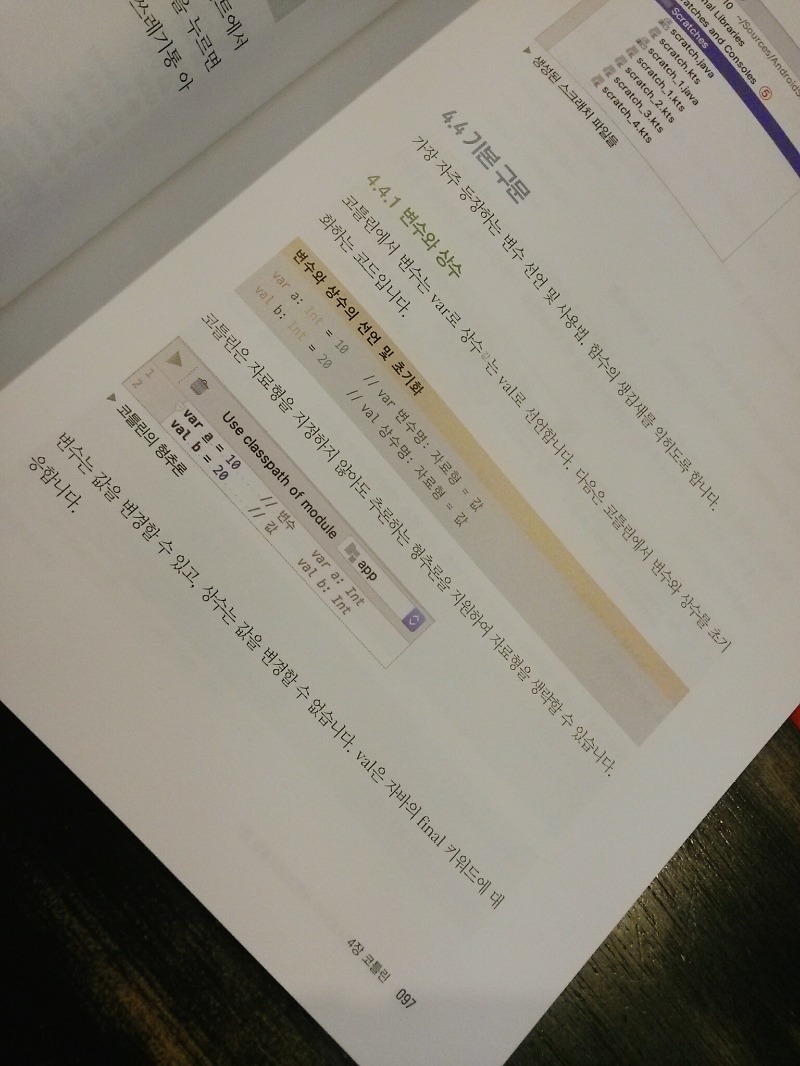 트에서
을 누르면
쓰레기통 아
10 ~/Sources/Android
nal Libraries
ratches and Consoles ⑤
Scratches
scratch.java
scratch.kts
scratch_1.java
scratch_1.kts
scratch_2.kts
scratch_3.kts
scratch_4.kts
▶ 생성된 스크래치 파일들
4.4 기본 구문
가장 자주 등장하는 변수 선언 및 사용법, 함수의 생김새를 익히도록 합니다.
4.4.1 변수와 상수
코틀린에서 변수는 var로 상수는 val로 선언합니다. 다음은 코틀린에서 변수와 상수를 초기
화하는 코드입니다.
변수와 상수의 선언 및 초기화
var a: Int = 10 // var 변수명: 자료형 = 값
val b: Int = 20 // val 상수명: 자료형 = 값
코틀린은 자료형을 지정하지 않아도 추론하는 형추론을 지원하여 자료형을 생략할 수 있습니다.
Use classpath of module app
1 var a = 10 // 변수 var a: Int
2 val b = 20 // 값 val b: Int
▶ 코틀린의 형추론
변수는 값을 변경할 수 있고, 상수는 값을 변경할 수 없습니다. val은 자바의 final 키워드에 대
응합니다.
4장 코틀린 097